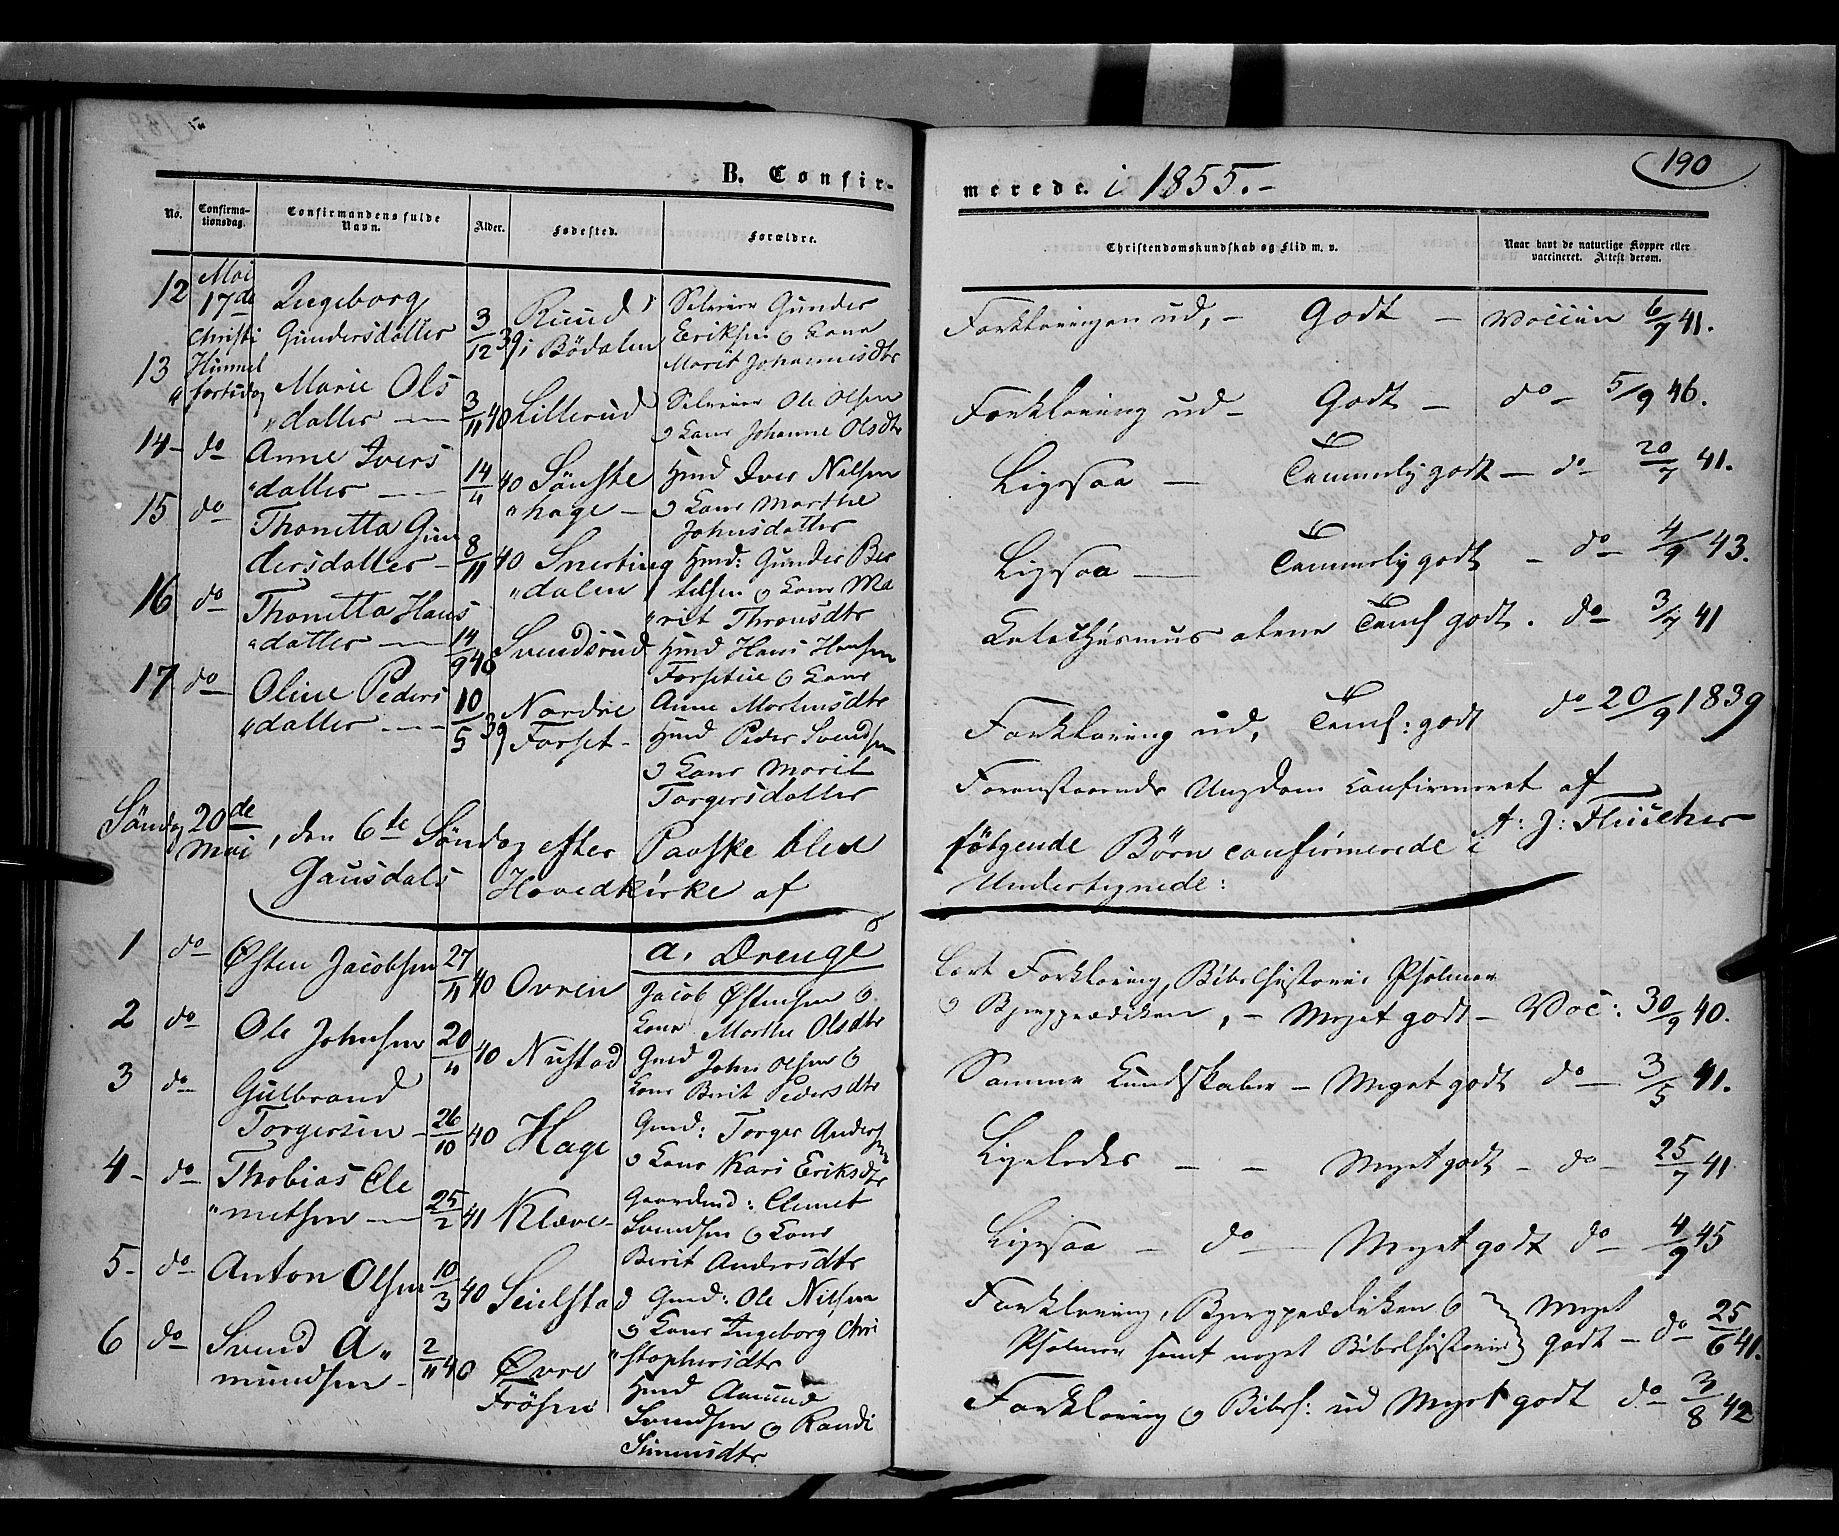 190
B. Confir-
merede. i 1855.-
No.
Confirma-
tionsdag.
Confirmandens fulde
Navn.
Alder.
Fødested.
Forældre.
Christendomskundskab og Flid m. v.
Naar havt de naturlige Kopper eller
vaccineret. Attest derom.
12 Mai 17de Christi Himmelfartsdag
Ingeborg
Gundersdatter
3/12 39
Ruud i
Bödalen
Selveier Gunder
Eriksen o Kone
Marit Johannesdtr
Forklaringen ud, - Godt - Vaccin 6/7 41.
13 "
Marie Ols
"datter —
3/11 40
Lillerud
Selveier Ole Olsen
o Kone Johanne Olsdtr
Forklaring ud - Godt - do - 5/9 46.
14 - do
Anne Ivers
"datter —
14/4 40
Sönste
"hage -
Hmd Iver Nilsen
o Kone Marthe
Johnsdatter
Ligesaa - Temmelig godt - do - 20/7 41.
15 do
Thonetta Gun
dersdatter -
8/11 40
Snerting
"dalen
Hmd: Gunder Ber
telsen o Kone Ma
"rit Thronsdtr
Ligesaa — Temmelig godt - do - 4/9 43.
16 do
Thonetta Hans
"datter —
14/9 40
Svendsrud
Hmd Hans Hansen
Forsetie o Kone
Anne Mortensdtr
Katekhismus alene Teml godt. do - 3/7 41
17 do
Oline Peders
"datter —
10/5 39
Nordre
Forset -
Hmd Peder Svendsen
o Kone Marit
Torgersdatter
Forklaring ud, Teml: godt do - 20/9 1839
Foranstaaende Ungdom confirmeret af
A: J: Fluicher
Söndag 20de Mai, den 6te Söndag efter Paaske blev
følgende Børn confirmerede i
Gausdals Hovedkirke af
Undertegnede:
a. Drenge
1 do
Østen Jacobsen
27/11 40
Ovren
Jacob Østensen o
Kone Marthe Olsdtr
Lært Forklaring, Bibelhistorie Psalmer
o Bjergprædiken, - Meget godt - Vac: 30/9 40.
2 do
Ole Johnsen
20/4 40
Nustad
Gmd John Olsen o
Kone Berit Pedersdtr
Samme Kundskaber - Meget godt do - 3/5 41.
3 do
Gulbrand
Torgersen -
26/10 40
Hage
Gmd: Torger Andersen
o Kone Kari Eriksdtr
Ligeledes - - Meget godt - do - 25/7 41
4 - do
Thobias Cle
"metsen —
25/2 41
Klæve -
Gaardmd: Clemet
Svendsen o Kone
Berit Andersdtr
Ligesaa - do - Meget godt do - 4/9 45
5 - do
Anton Olsen
10/3 40
Seielstad
Gmd: Ole Nilsen
o Kone Ingeborg Chri
"stophersdtr
Forklaring, Bjergprædiken o
Psalmer samt noget Bibelhistorie
Meget
godt - do 25/6 41.
6 do
Svend A"
mundsen -
2/11 40
Øvre
Frösen
Hmd Amund
Svendsen o Randi
Simensdtr
Forklaring o Bibels: ud Meget godt do - 3/8 42